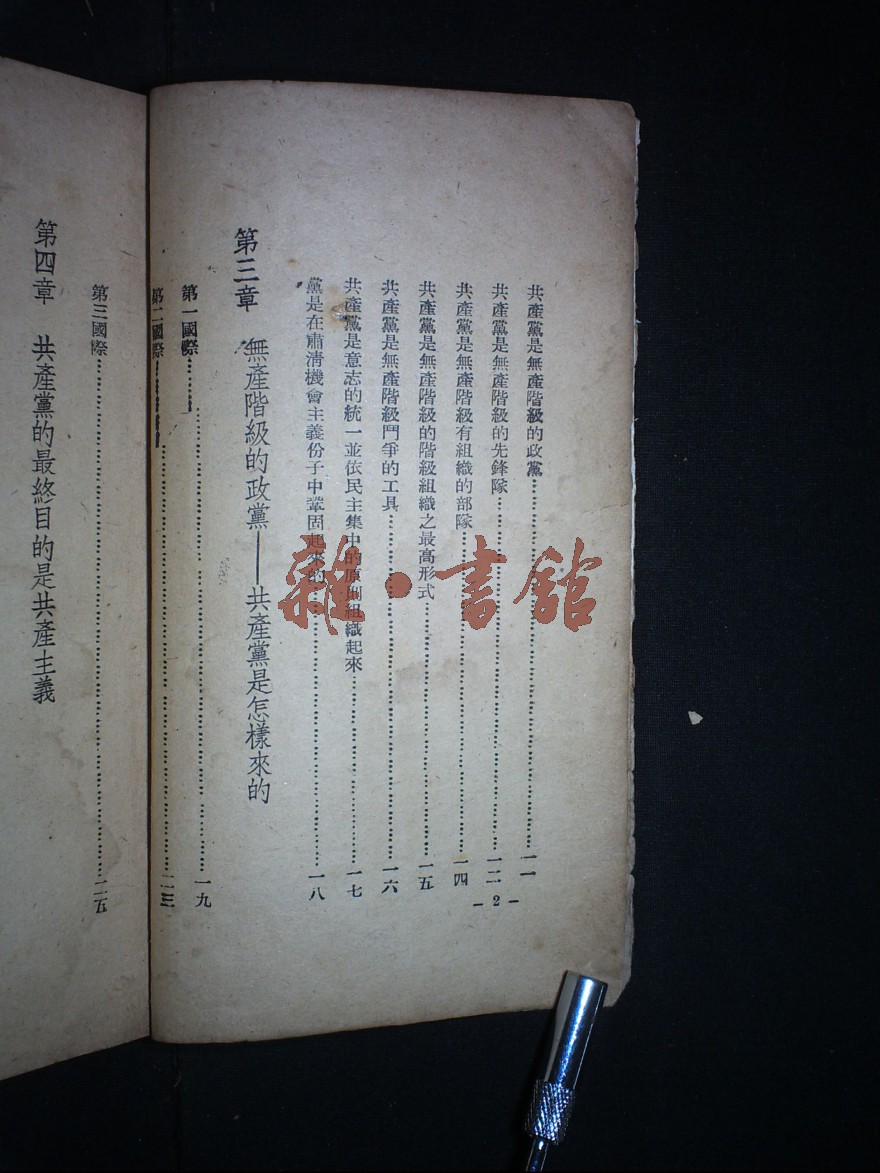 共產黨是無產階級的政黨……一一
共產黨是無產階級的先鋒隊……一二
共產黨是無產階級有組織的部隊……一四
共產黨是無產階級的階級組織之最高形式……一五
共產黨是無產階級鬥爭的工具……一六
共產黨是意志的統一並依民主集中的原則組織起來……一七
黨是在肅清機會主義份子中鞏固起來的……一八
第三章 無產階級的政黨——共產黨是怎樣來的
第一國際……一九
第二國際……二三
第三國際……二五
第四章 共產黨的最終目的是共產主義
— 2 —
雜·書館